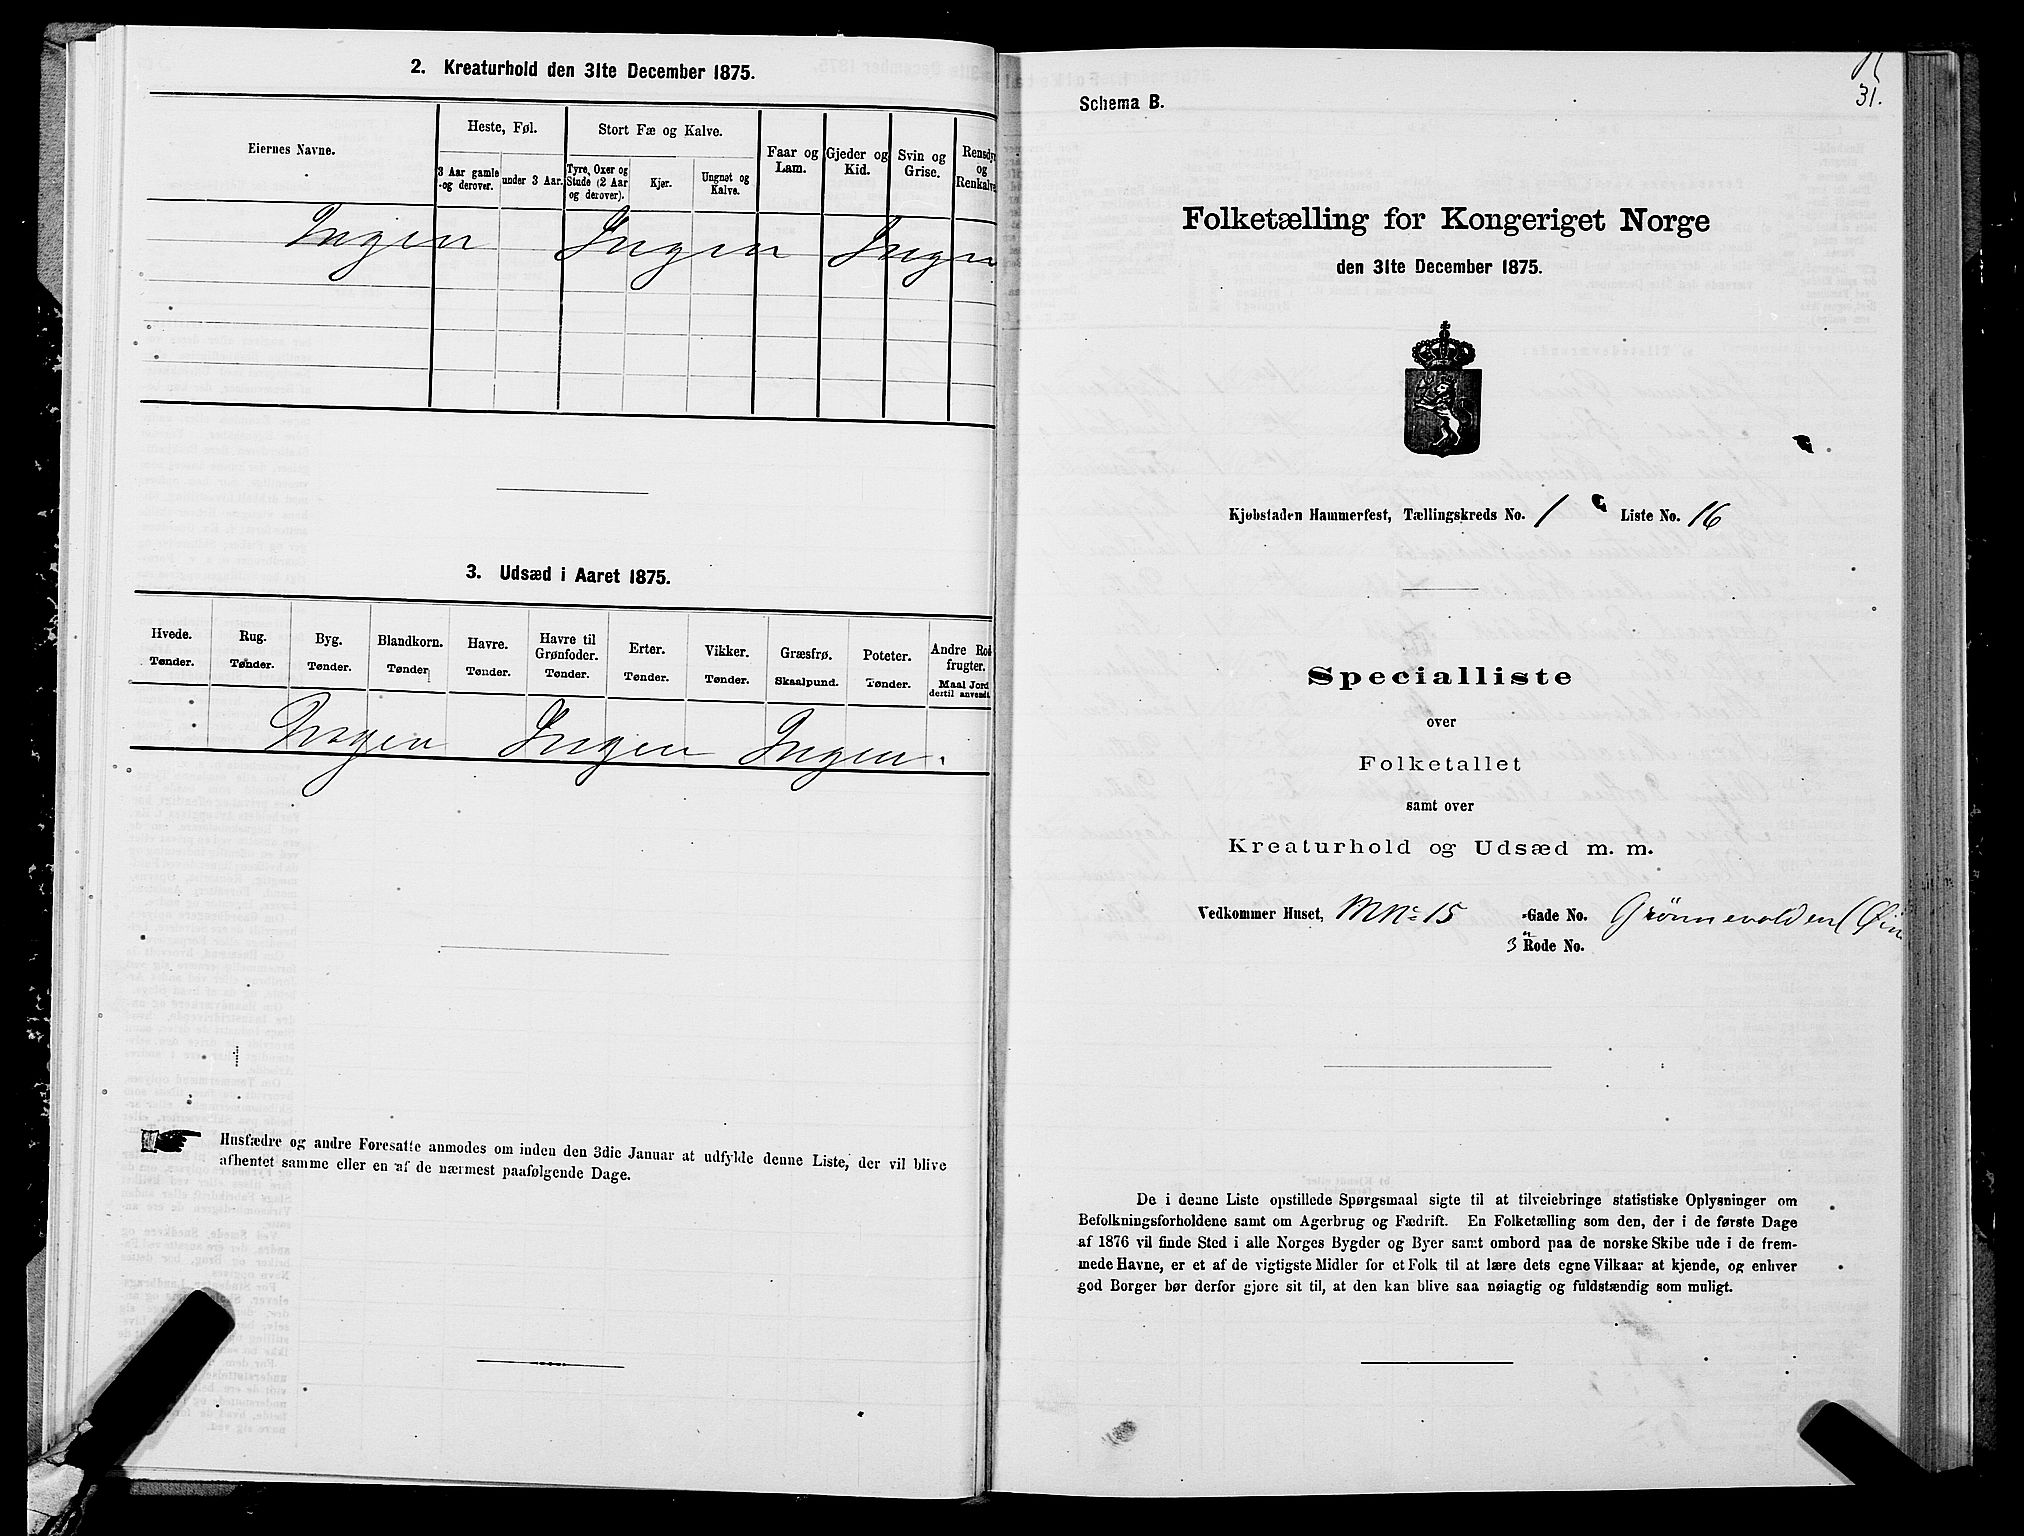 2. Kreaturhold den 31te December 1875.
Eiernes Navne.
Heste, Føl.
Stort Fæ og Kalve.
Faar og Lam.
Gjeder og Kid.
Svin og Grise.
Rensdyr og Renkalve
3 Aar gamle og derover.
under 3 Aar.
Tyre, Oxer og Stude (2 Aar og derover).
Kjør.
Ungnøt og Kalve.
Ingen Ingen Ingen
3. Udsæd i Aaret 1875.
Hvede. Rug. Byg. Blandkorn. Havre. Havre til Grønfoder. Erter. Vikker. Græsfrø. Poteter. Andre Rodfrugter.
Tønder. Tønder. Tønder. Tønder Tønder. Tønder. Tønder. Tønder. Skaalpund. Tønder. Maal Jord dertil anvendt.
Ingen Ingen Ingen.
Husfædre og andre Foresatte anmodes om inden den 3die Januar at udfylde denne Liste, der vil blive
afhentet samme eller en af de nærmest paafølgende Dage.
31.
Schema B.
Folketælling for Kongeriget Norge
den 31te December 1875.
Kjøbstaden Hammerfest, Tællingskreds No. 1 Liste No. 16
Specialliste
over
Folketallet
samt over
Kreaturhold og Udsæd m. m.
Vedkommer Huset, MNo 15 -Gade No. Grønnevolden (Øen
3 Rode No.
De i denne Liste opstillede Spørgsmaal sigte til at tilveiebringe statistiske Oplysninger om
Befolkningsforholdene samt om Agerbrug og Fædrift. En Folketælling som den, der i de første Dage
af 1876 vil finde Sted i alle Norges Bygder og Byer samt ombord paa de norske Skibe ude i de frem-
mede Havne, er et af de vigtigste Midler for et Folk til at lære dets egne Vilkaar at kjende, og enhver
god Borger bør derfor gjøre sit til, at den kan blive saa nøiagtig og fuldstændig som muligt.